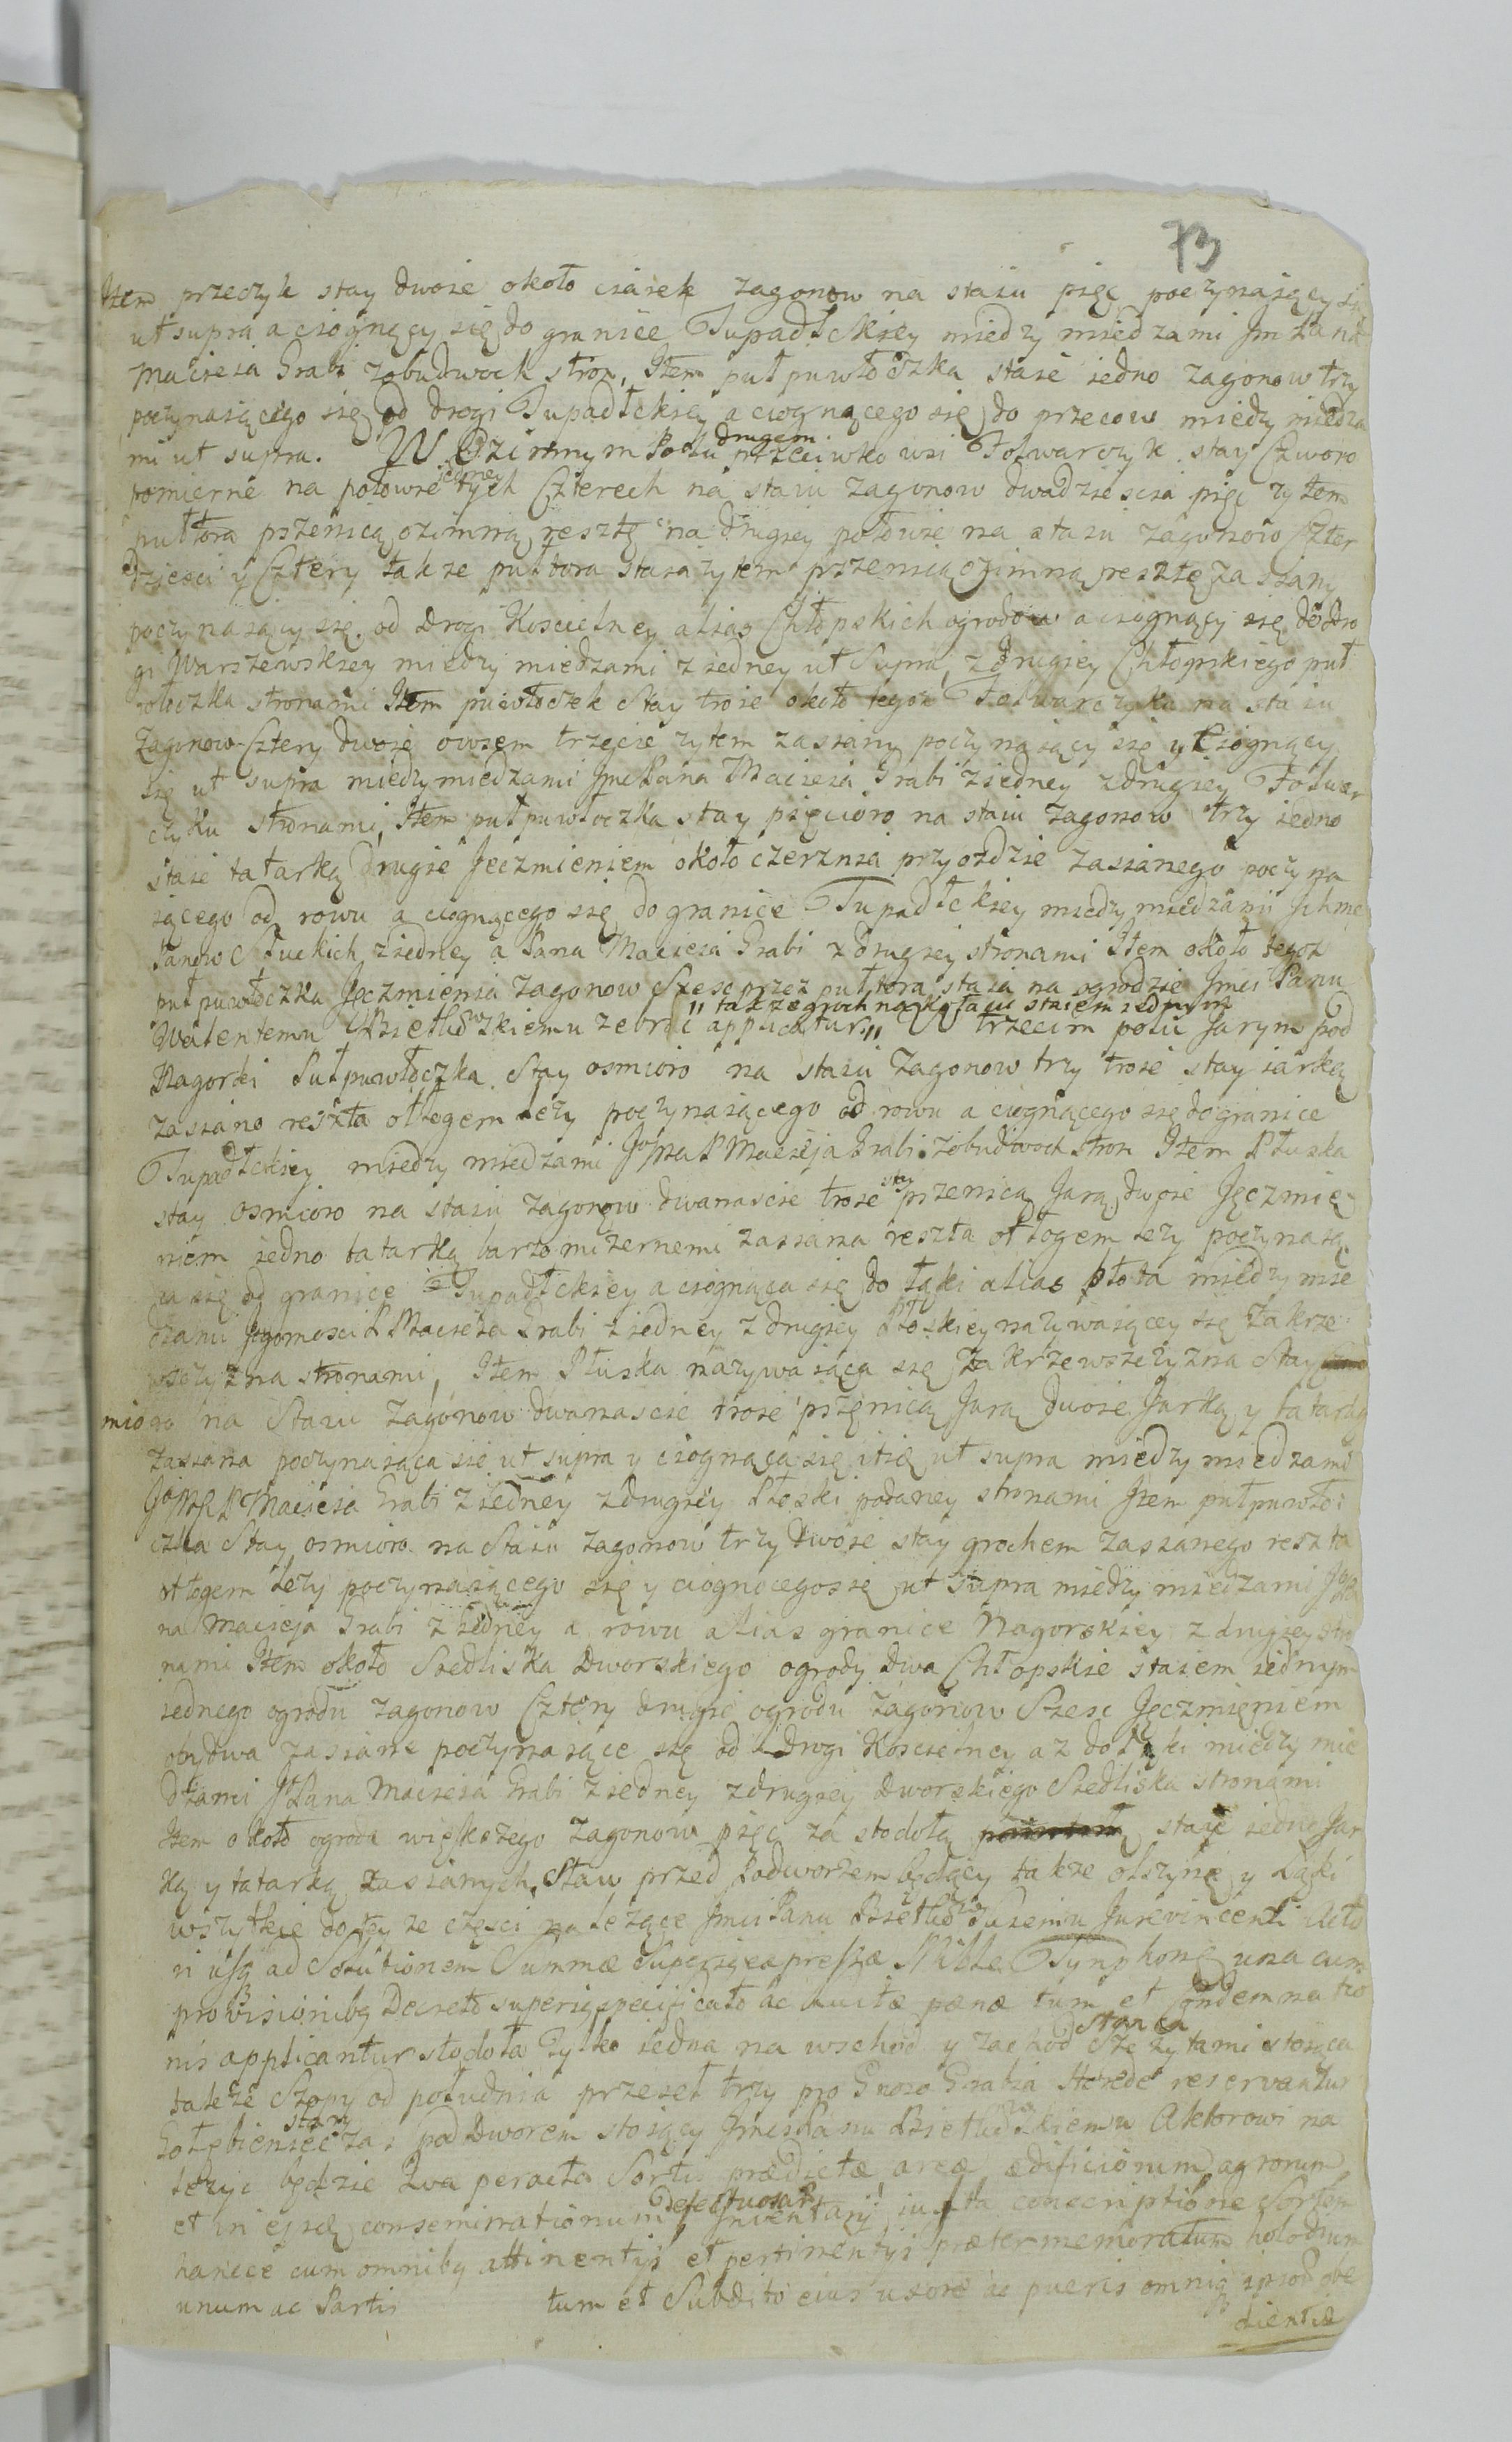 73
Item przeczyk stay dwoie około ciasek zagonow na staiu pięc poczynaiący się
ut supra a ciognący się do granice Tupadłckiey miedzy miedzami Jm Pana
Macieia Grabi zobudwoch stron, Item puł puwłoczka staie iedno zagonow trzy
poczynaiącego się od drogi Tupadłckiey a ciognącego się do przecow miedzy miedza
mi ut supra. W Ozimnym Polu drugem przeciwko wsi Folwarczyk stay Czworo
pomierne na połowie iedney tych Czterech na staiu zagonow dwadziescia pięc żytem
pułtora pszenicą ozimną resztę na drugiey połowie na staiu zagonow Czter
dziesci y Cztery także pułtora staia żytem pszenicą ozimną resztę zasiany
poczynaiący się od Drogi Koscielney alias Chłopskich ogrodow a ciognący się do dro
gi Warszewskiey miedzy miedzami z iedney ut Supra, z drugiey Chłopskiego puł
włoczka stronami Item puwłoczek Stay troie około tegoż Folwarczyka na staiu
Zagonow Cztery dwoie owsem trzecie żytem zasiany poczynaiący się y Ciognący
się ut supra miedzy miedzami Jmc Pana Macieia Grabi z iedney z drugiey Folwar
czyku stronami, Item puł puwłoczka stay pięcioro na staiu zagonow trzy iedno
staie tatarką drugie Jęczmieniem około czerznia przyozdzie zasianego poczyna
iącego od rowu a ciognącego się do granice Tupadłckiey miedzy miedzami Jchmc
Panow Łuckich z iedney a Pana Macieia Grabi z drugiey stronami Item około tegoż
puł puwłoczka Jęczmienia zagonow Szesc przez pułtora staia na ogrodzie Jmci Panu
Walentemu Bzietuwskiemu zebrać applicatur,, także groch na kołaiu staiem iednym ,, W trzecim polu Jarym pod
Nagorki Puł puwłoczka Stay osmioro na staiu zagonow trzy troie stay iarką
zasiano reszta odłogem leży poczynaiącego od rowu a ciognącego się do granice
Tupadłckiey miedzy miedzami Jmsci P Macieja Grabi z obudwoch stron Item Płuska
stay osmioro na staiu zagonow dwanascie troie stay pszenicą Jarą, dwoie Jęczmie
niem iedno tatarką barzo mizernemi zasiana reszta odłogem leży poczynaią
ca się od granice Tupadłckiey a ciognąca się do łąki alias błota miedzy mie
dzami Jegomosci P Macieia Grabi z iedney z drugiey Płoskiey nazywaiącey się Zakrze
wszczyzna stronami, Item Płuska nazywaiąca się Zakrzewszczyzna Stay
mioro na Staiu zagonow dwanascie troie pszenicą Jarą dwoie Jarką y tatarką
zasiana poczynaiąca się ut supra y ciognąca się itię ut supra miedzy miedzami
Jmsci P Macieia Grabi z iedney z drugiey Płoski podaney stronami Item puł puwło
czka Stay osmioro na Staiu zagonow trzy dwoie stay grochem zasianego reszta
odłogem leży poczynaiącego się y ciognocego się ut supra miedzy miedzami J Pa
na Macieja Grabi z iedney a rowu alias granice Nagorskiey z drugiey stro
nami Item około Siedliska Dworskiego ogrody dwa Chłopskie staiem iednym
iednego ogrodu zagonow Cztery drugie ogrodu zagonow Szesc Jęczmieniem
obydwa zasiane poczynaiące się od Drogi Koscielney aż do łąki miedzy mie
dzami J Pana Macieia Grabi z iedney z drugiey Dworskiego Siedliska stronami
Item około ogroda większego zagonow pięc za stodołą staie iedno Jar
ką y tatarką zasianych, Staw przed Podworzem będący także olszynę y Łąki
wszytkie do tey że części należące Jmci Panu Bzietuwskiemu Jurevincenti Acto
ri usq ad Solutionem Summæ Superius expressæ Mille Tynphonę una cum
provisionibq Decreto superiq specificato ac luitæ pœnæ tum et Condemnatio
nis applicantur stodoła tylko iedna na wschod y zachod Szczytami stoiąca staraia
takze Szopy od południa przeseł trzy pro Groso Grabia Herede reservantur
Gołębieniec stary zas pod Dworem stoiący Jmci Panu Bzietuwskiemu Aktorowi na
leżyc będzie Qua peracta Sortis prædictæ areæ ædificiorum agrorum
et in ejsq conseminationum Defectuosar Inventarij iuxta conscriptione Sortem
hancce cum omnibq attinentijs et pertinentijs præter memoratum holodium
unum ac Partis tum et Subdito eius uxore ac pueris omniq ipsor obe
dientiæ